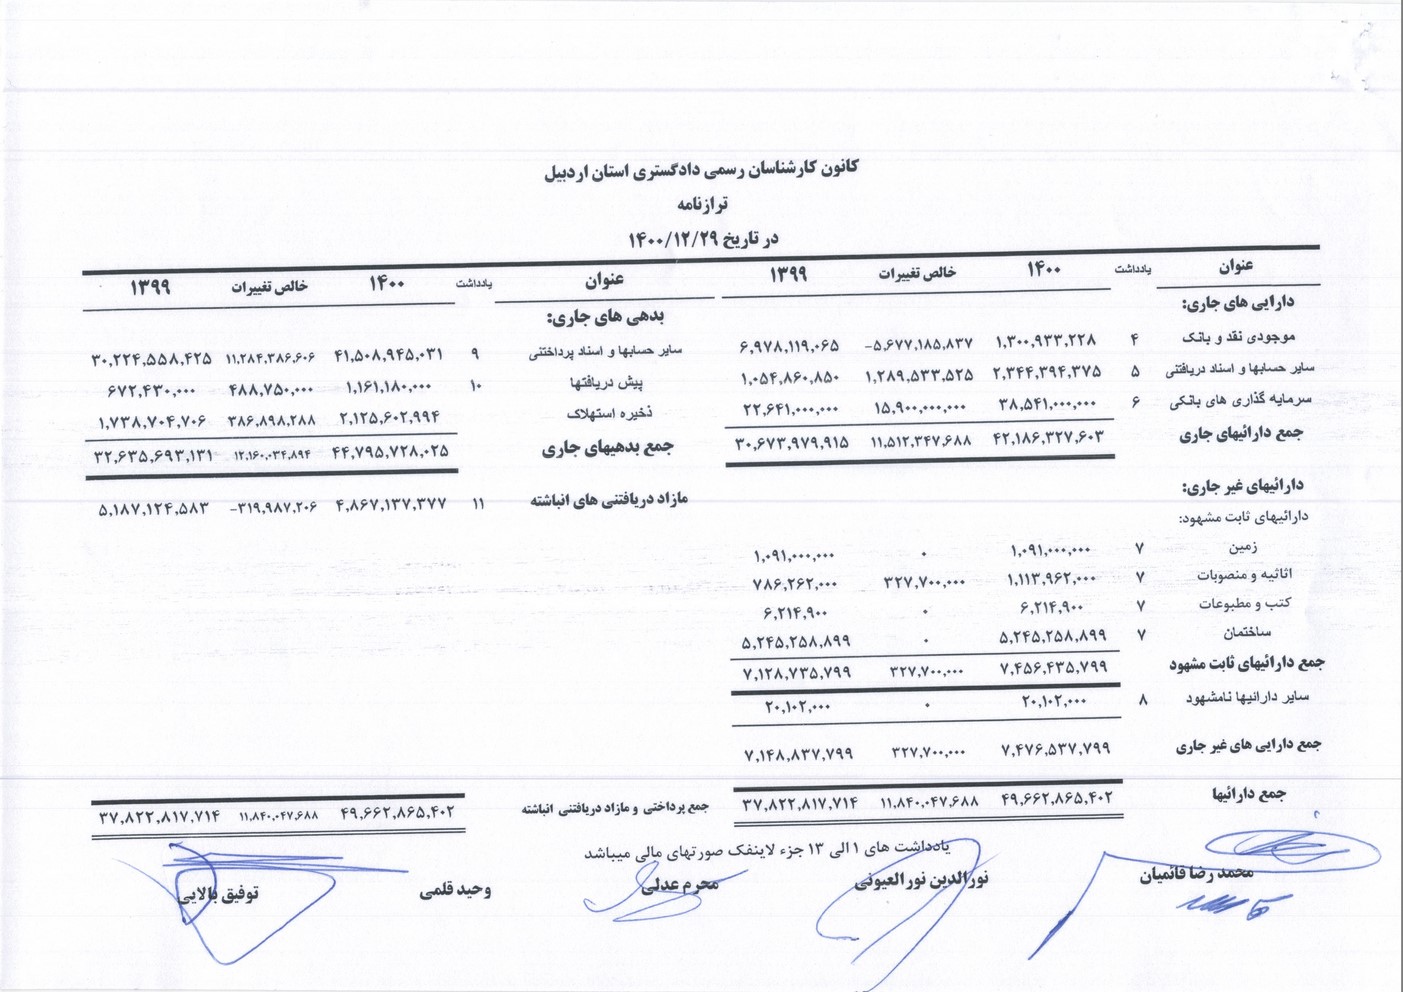 کانون کارشناسان رسمی دادگستری استان اردبیل
ترازنامه
در تاریخ ۱۴۰۰/۱۲/۲۹
عنوان یادداشت ۱۴۰۰ خالص تغییرات ۱۳۹۹ عنوان یادداشت ۱۴۰۰ خالص تغییرات ۱۳۹۹
دارایی های جاری: بدهی های جاری:
موجودی نقد و بانک ۴ ۱,۳۰۰,۹۳۳,۲۲۸ -۵,۶۷۷,۱۸۵,۸۳۷ ۶,۹۷۸,۱۱۹,۰۶۵ سایر حسابها و اسناد پرداختنی ۹ ۴۱,۵۰۸,۹۴۵,۰۳۱ ۱۱,۲۸۴,۳۸۶,۶۰۶ ۳۰,۲۲۴,۵۵۸,۴۲۵
سایر حسابها و اسناد دریافتنی ۵ ۲,۳۴۴,۳۹۴,۳۷۵ ۱,۲۸۹,۵۳۳,۵۲۵ ۱,۰۵۴,۸۶۰,۸۵۰ پیش دریافتها ۱۰ ۱,۱۶۱,۱۸۰,۰۰۰ ۴۸۸,۷۵۰,۰۰۰ ۶۷۲,۴۳۰,۰۰۰
سرمایه گذاری های بانکی ۶ ۳۸,۵۴۱,۰۰۰,۰۰۰ ۱۵,۹۰۰,۰۰۰,۰۰۰ ۲۲,۶۴۱,۰۰۰,۰۰۰ ذخیره استهلاک ۲,۱۲۵,۶۰۲,۹۹۴ ۳۸۶,۸۹۸,۲۸۸ ۱,۷۳۸,۷۰۴,۷۰۶
جمع دارائیهای جاری ۴۲,۱۸۶,۳۲۷,۶۰۳ ۱۱,۵۱۲,۳۴۷,۶۸۸ ۳۰,۶۷۳,۹۷۹,۹۱۵ جمع بدهیهای جاری ۴۴,۷۹۵,۷۲۸,۰۲۵ ۱۲,۱۶۰,۰۳۴,۸۹۴ ۳۲,۶۳۵,۶۹۳,۱۳۱
دارائیهای غیر جاری: مازاد دریافتنی های انباشته ۱۱ ۴,۸۶۷,۱۳۷,۳۷۷ -۳۱۹,۹۸۷,۲۰۶ ۵,۱۸۷,۱۲۴,۵۸۳
دارائیهای ثابت مشهود:
زمین ۷ ۱,۰۹۱,۰۰۰,۰۰۰ ۰ ۱,۰۹۱,۰۰۰,۰۰۰
اثاثیه و منصوبات ۷ ۱,۱۱۳,۹۶۲,۰۰۰ ۳۲۷,۷۰۰,۰۰۰ ۷۸۶,۲۶۲,۰۰۰
کتب و مطبوعات ۷ ۶,۲۱۴,۹۰۰ ۰ ۶,۲۱۴,۹۰۰
ساختمان ۷ ۵,۲۴۵,۲۵۸,۸۹۹ ۰ ۵,۲۴۵,۲۵۸,۸۹۹
جمع دارائیهای ثابت مشهود ۷,۴۵۶,۴۳۵,۷۹۹ ۳۲۷,۷۰۰,۰۰۰ ۷,۱۲۸,۷۳۵,۷۹۹
سایر دارائیها نامشهود ۸ ۲۰,۱۰۲,۰۰۰ ۰ ۲۰,۱۰۲,۰۰۰
جمع دارایی های غیر جاری ۷,۴۷۶,۵۳۷,۷۹۹ ۳۲۷,۷۰۰,۰۰۰ ۷,۱۴۸,۸۳۷,۷۹۹
جمع دارائیها ۴۹,۶۶۲,۸۶۵,۴۰۲ ۱۱,۸۴۰,۰۴۷,۶۸۸ ۳۷,۸۲۲,۸۱۷,۷۱۴ جمع پرداختی و مازاد دریافتنی انباشته ۴۹,۶۶۲,۸۶۵,۴۰۲ ۱۱,۸۴۰,۰۴۷,۶۸۸ ۳۷,۸۲۲,۸۱۷,۷۱۴
یادداشت های ۱ الی ۱۳ جزء لاینفک صورتهای مالی میباشد
محمد رضا قائمیان نورالدین نورالعیونی محرم عدلی وحید قلمی توفیق بالایی